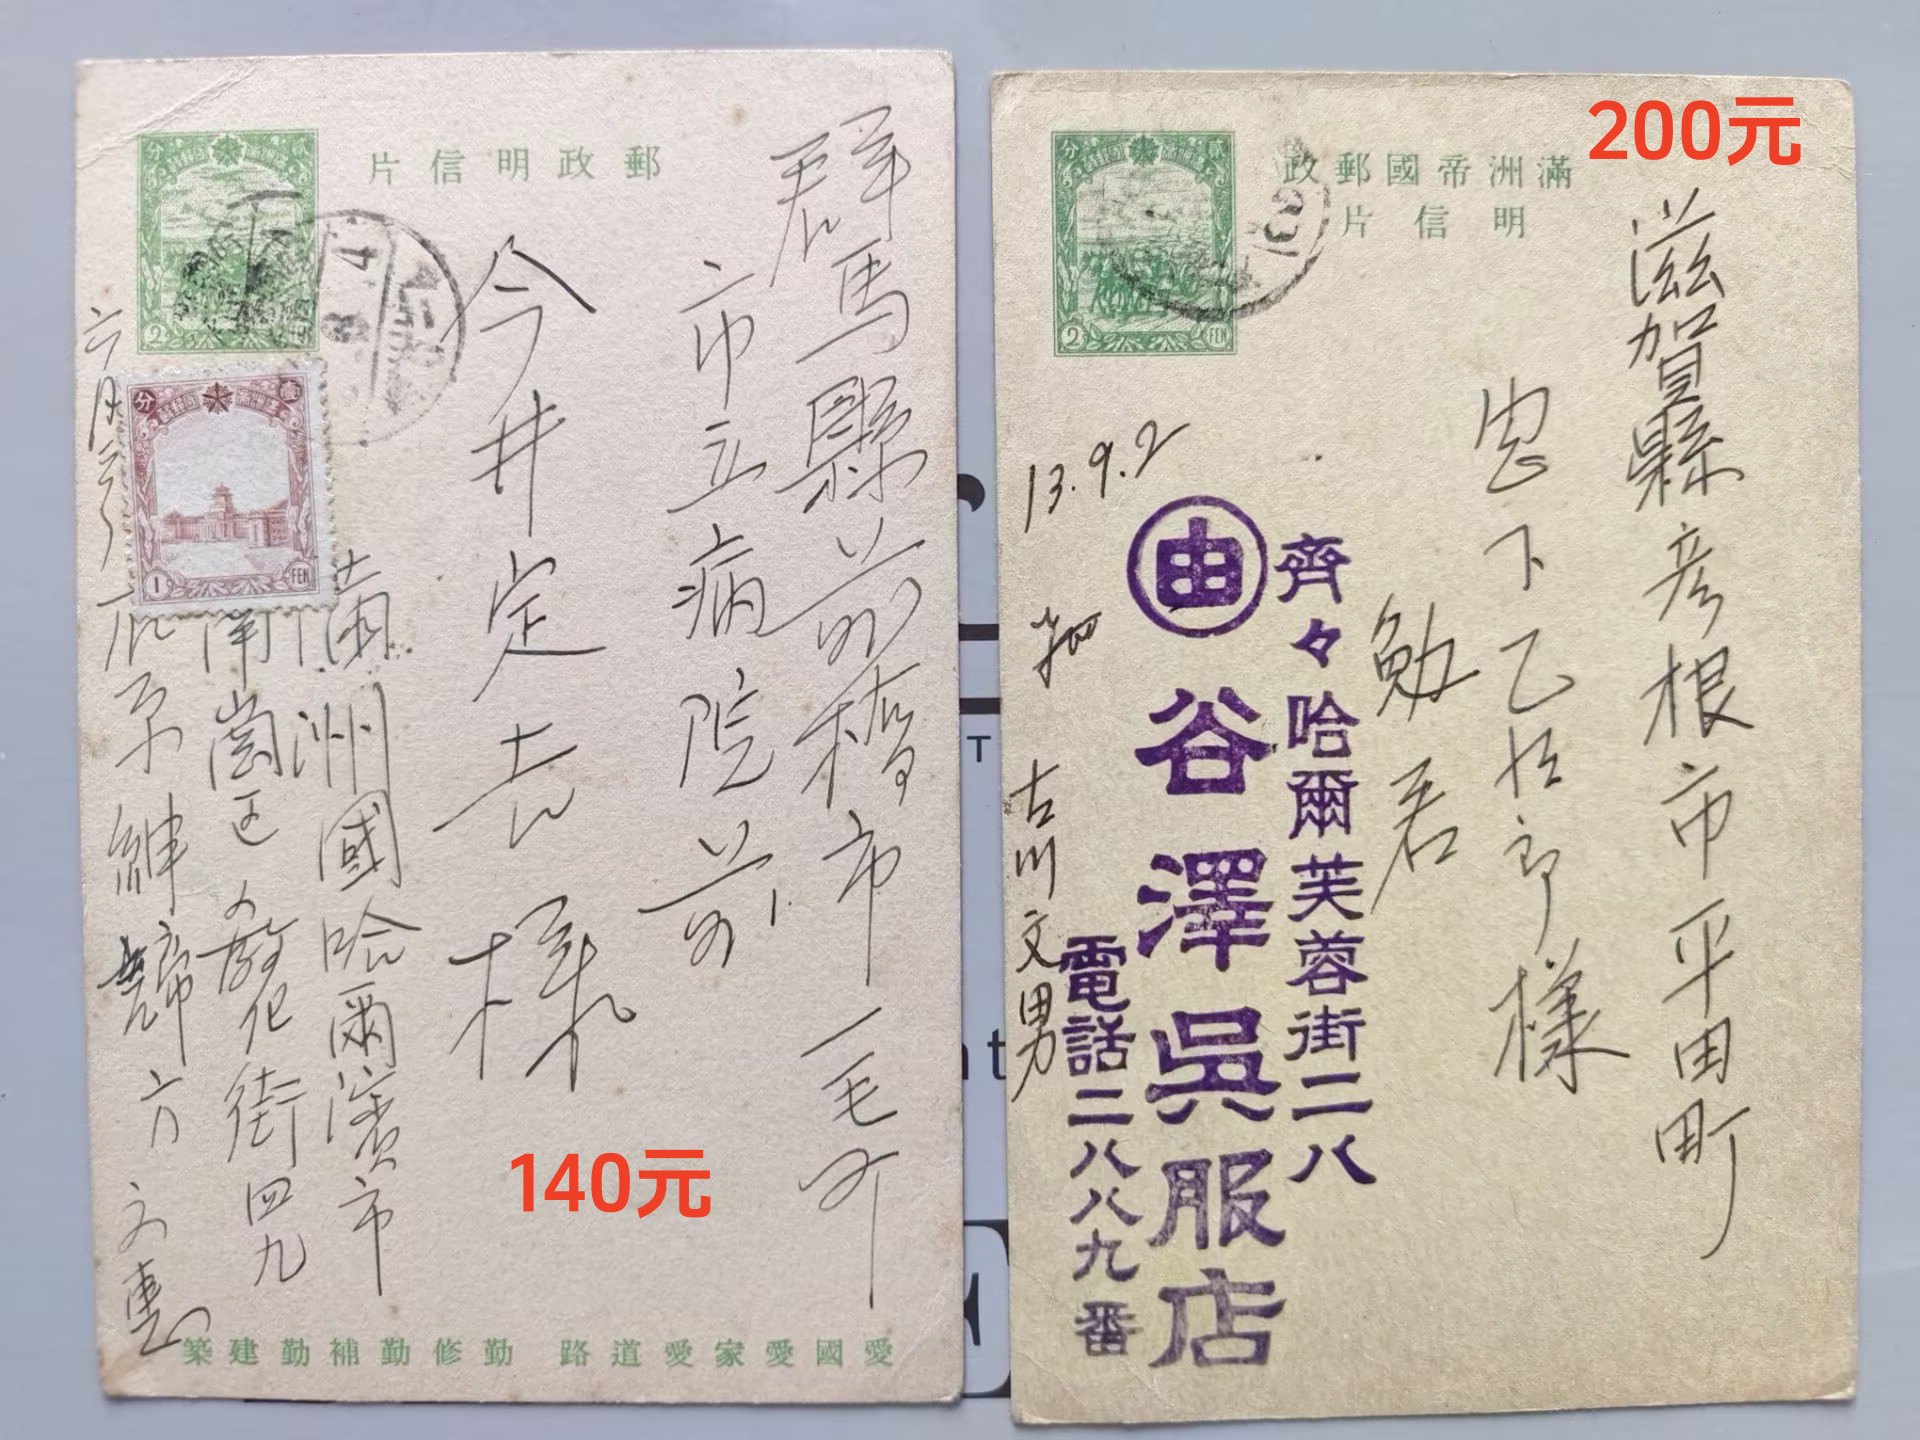 郵政明信片
貳分
2
群馬縣前橋市一毛町
市立病院前
今井定吉様
1
FEN
滿洲國哈爾濱市
南崗区文教化街四九
方
140元
愛國愛家愛道路 勤修勤補勤建築
200元
滿洲帝國郵政
明信片
2
FEN
滋賀縣彦根市平田町
様
勉君
13.9.2
齊々哈爾芙蓉街二八
由 谷澤吳服店
電話二八八九番
古川文男